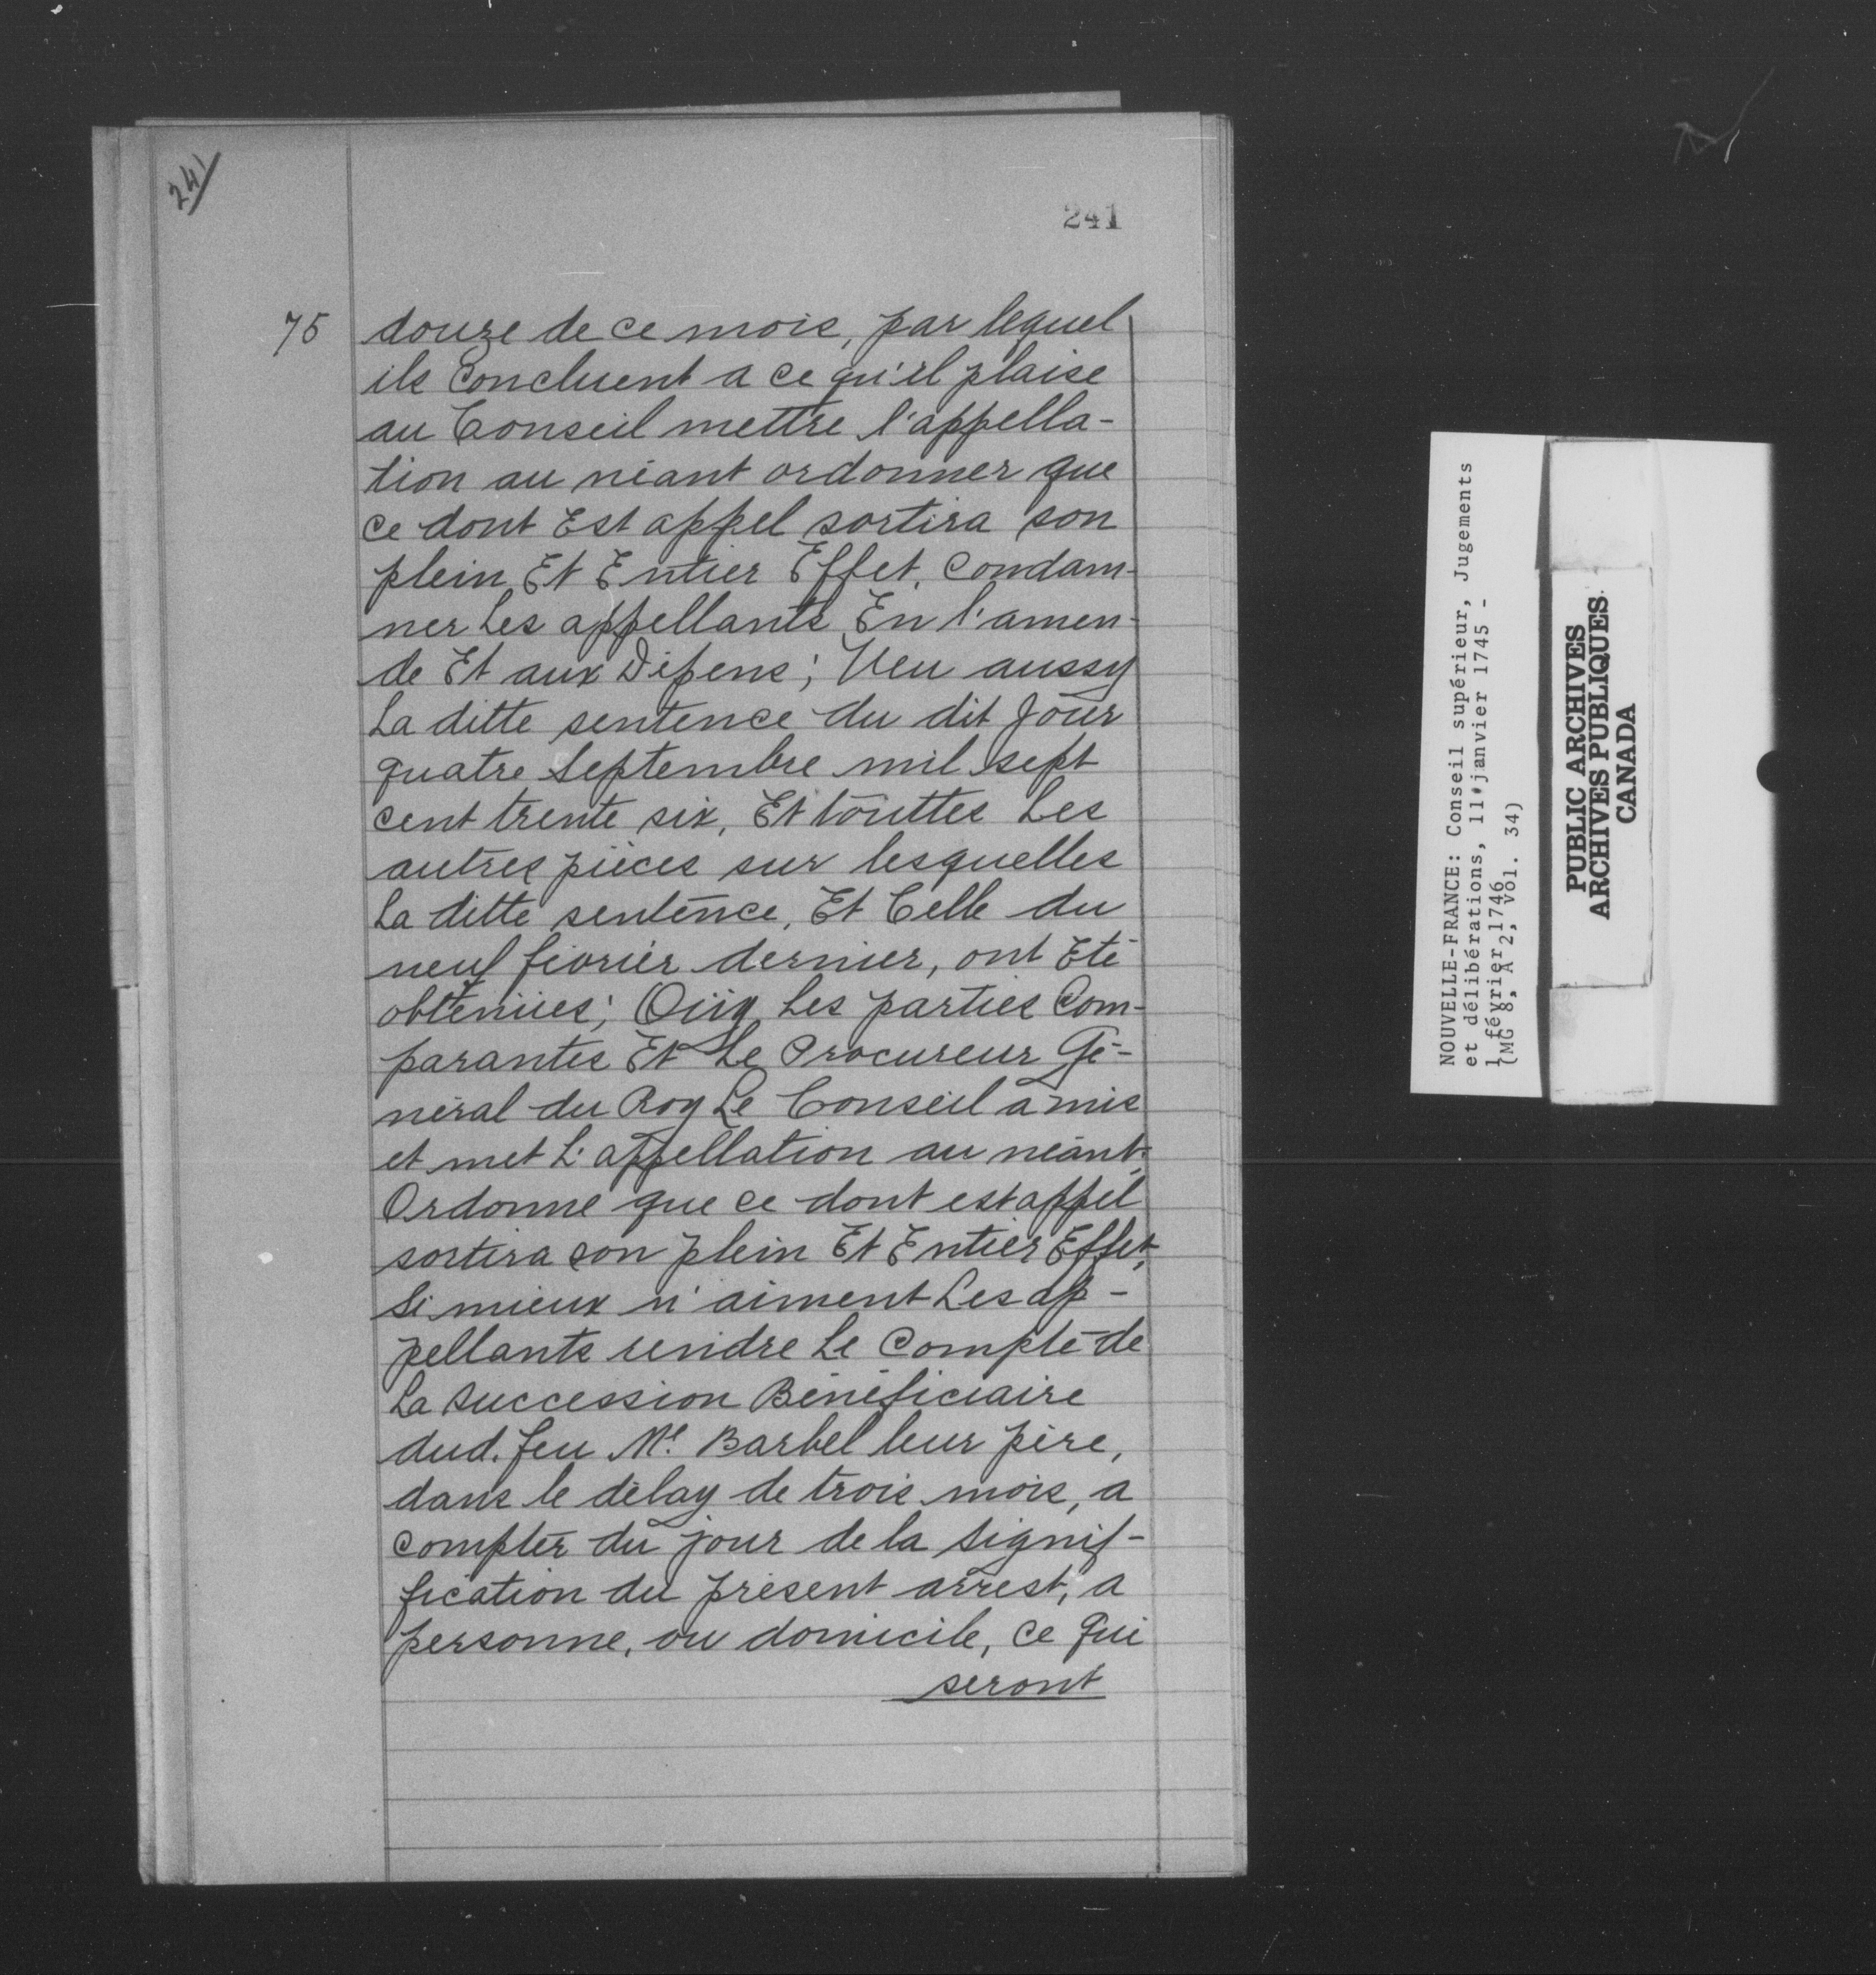 241
241
75
douze de ce mois, par lequel
ils Concluent a ce qu'il plaise
au Conseil mettre l'appella-
tion au néant ordonner que
ce dont Est appel sortira son
plein Et Entier Effet. Condam-
ner Les appellants En l'amen-
de Et aux Dépens; Veu aussy
La ditte sentence du dit Jour
quatre Septembre mil sept
cent trente six, Et touttes Les
autres pièces sur lesquelles
La ditte sentence, Et Celle du
neuf février dernier, ont Eté
obtenües; Oüy Les parties Com-
parantes Et Le Procureur Gé-
néral du Roy Le Conseil a mis
et met L'appellation au néant.
Ordonne que ce dont est appel
sortira son plein Et Entier Effet,
Si mieux n'aiment Les ap-
pellants rendre Le Compte de
La Succession Bénéficiaire
dud. feu Me. Barbel leur père,
dans le délay de trois mois, a
compter du jour de la signif-
fication du présent arrest, a
personne, ou domicile, ce qui
seront
NOUVELLE-FRANCE: Conseil supérieur, Jugements
et délibérations, 11 janvier 1745 -
1 février 1746
(MG 8, A 2, vol. 34)
PUBLIC ARCHIVES
ARCHIVES PUBLIQUES
CANADA